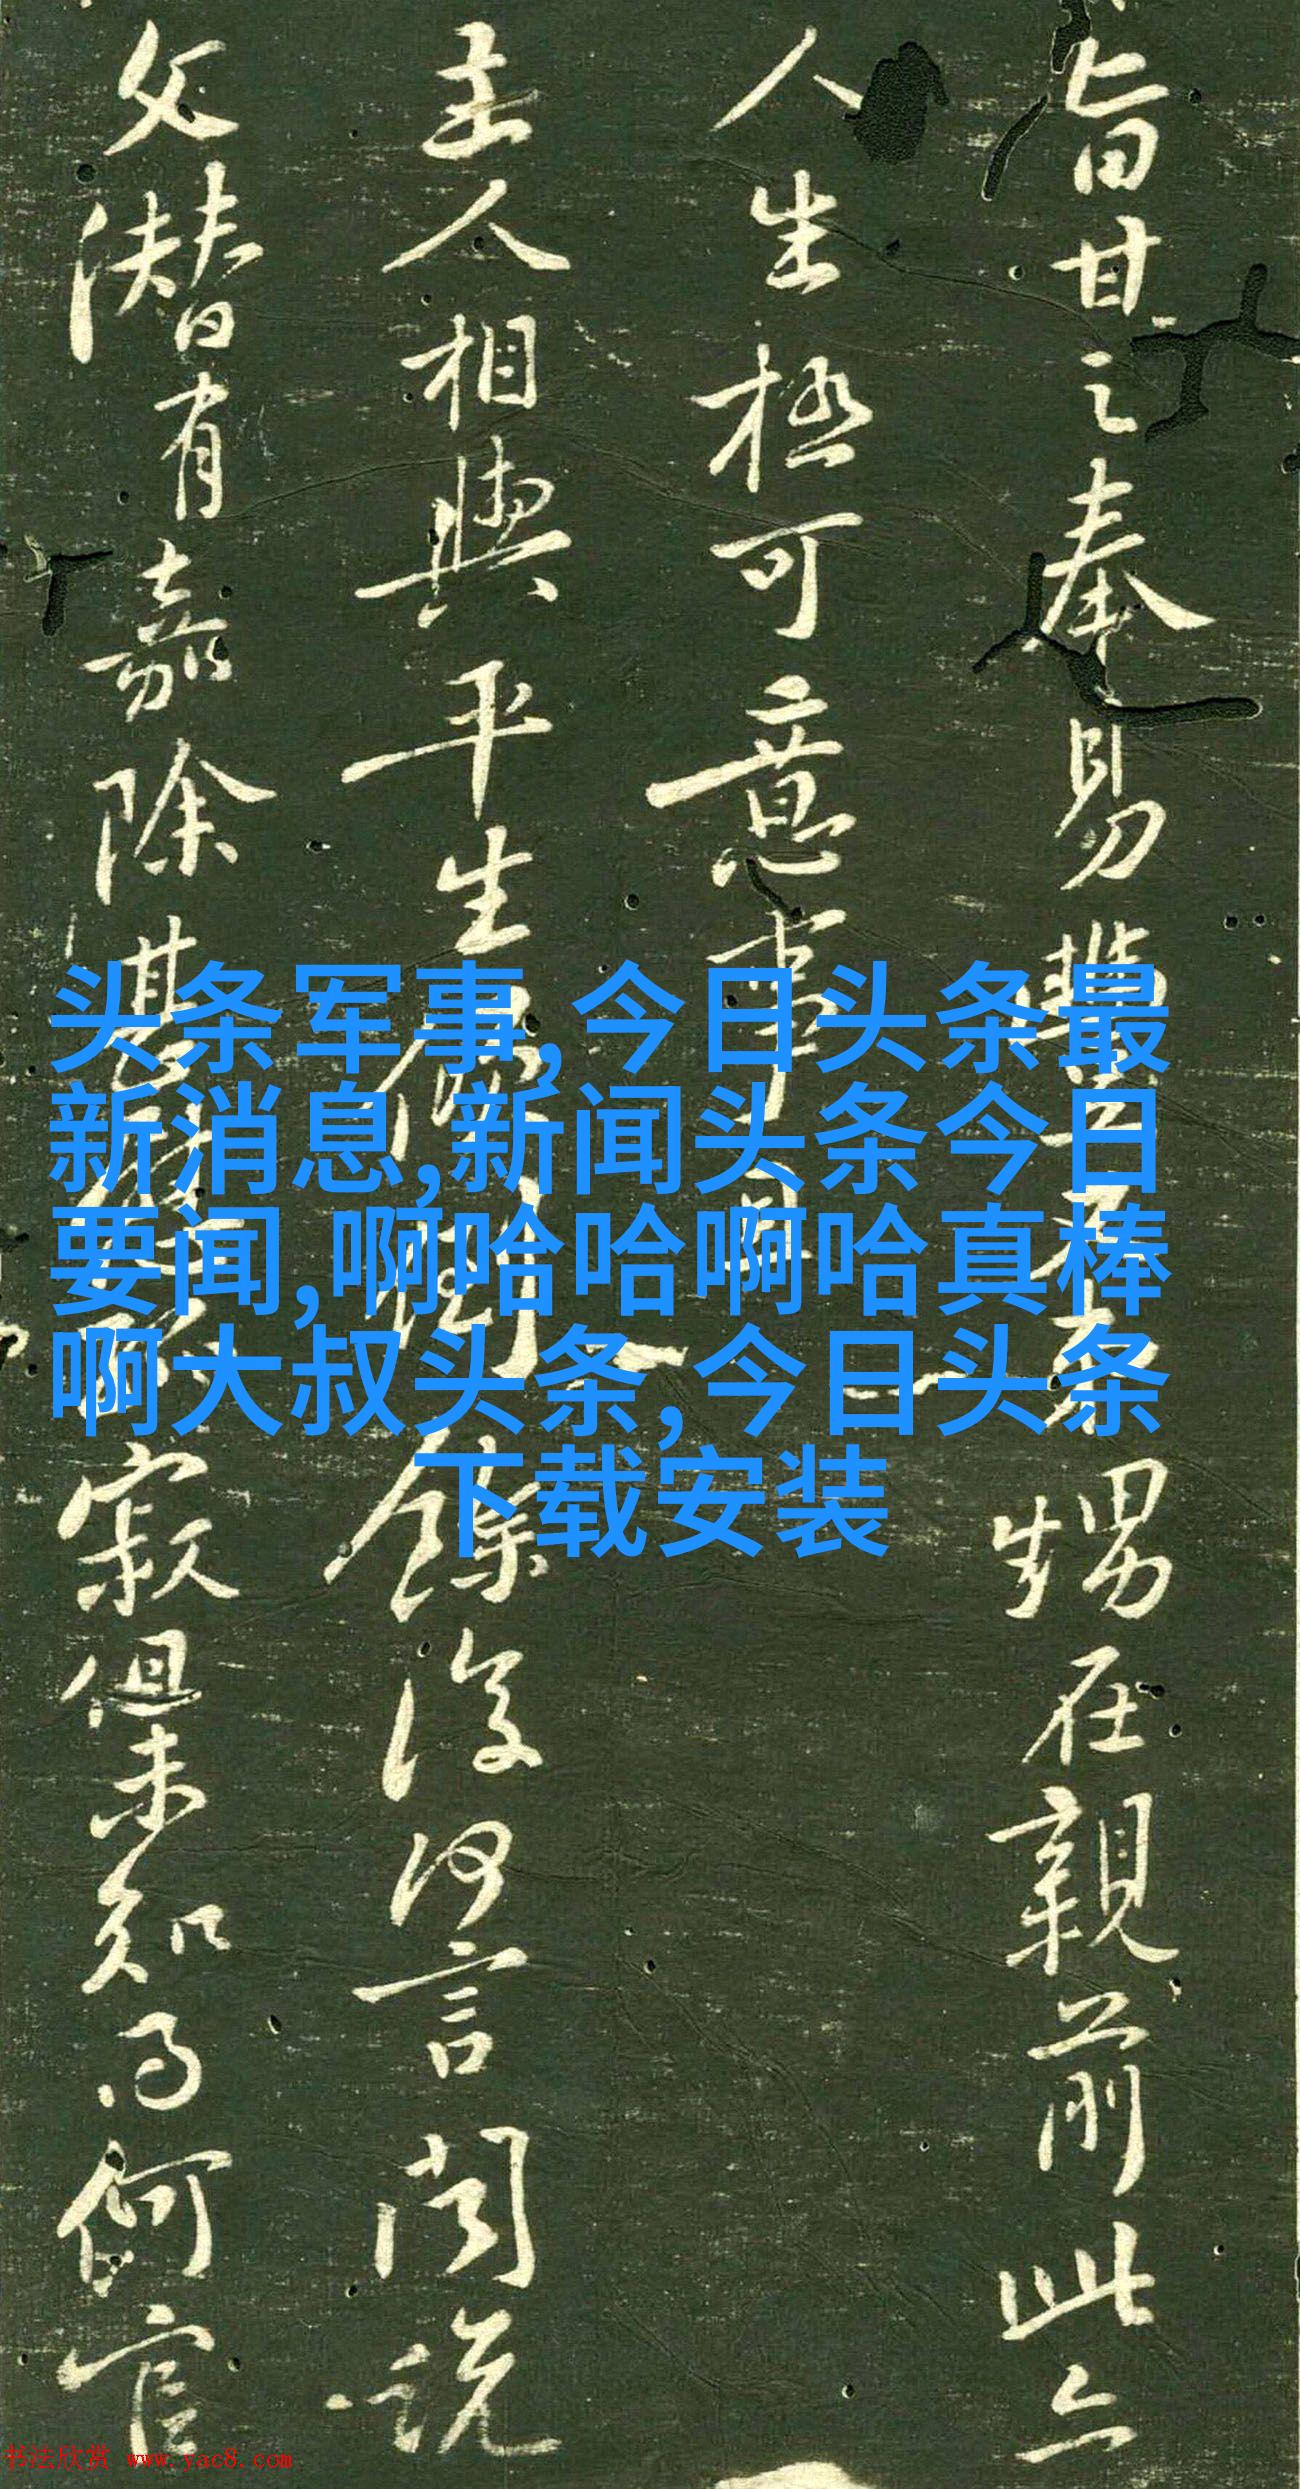 旨甘之奉易豐
甥在親前此亦
人生極可意事
主人相與平生
餘復何言閒說
父潛有嘉除甚
寂但未知得何官
头条军事,今日头条最
新消息,新闻头条今日
要闻,啊哈哈啊哈真棒
啊大叔头条,今日头条
下载安装
书法欣赏 www.yac8.com